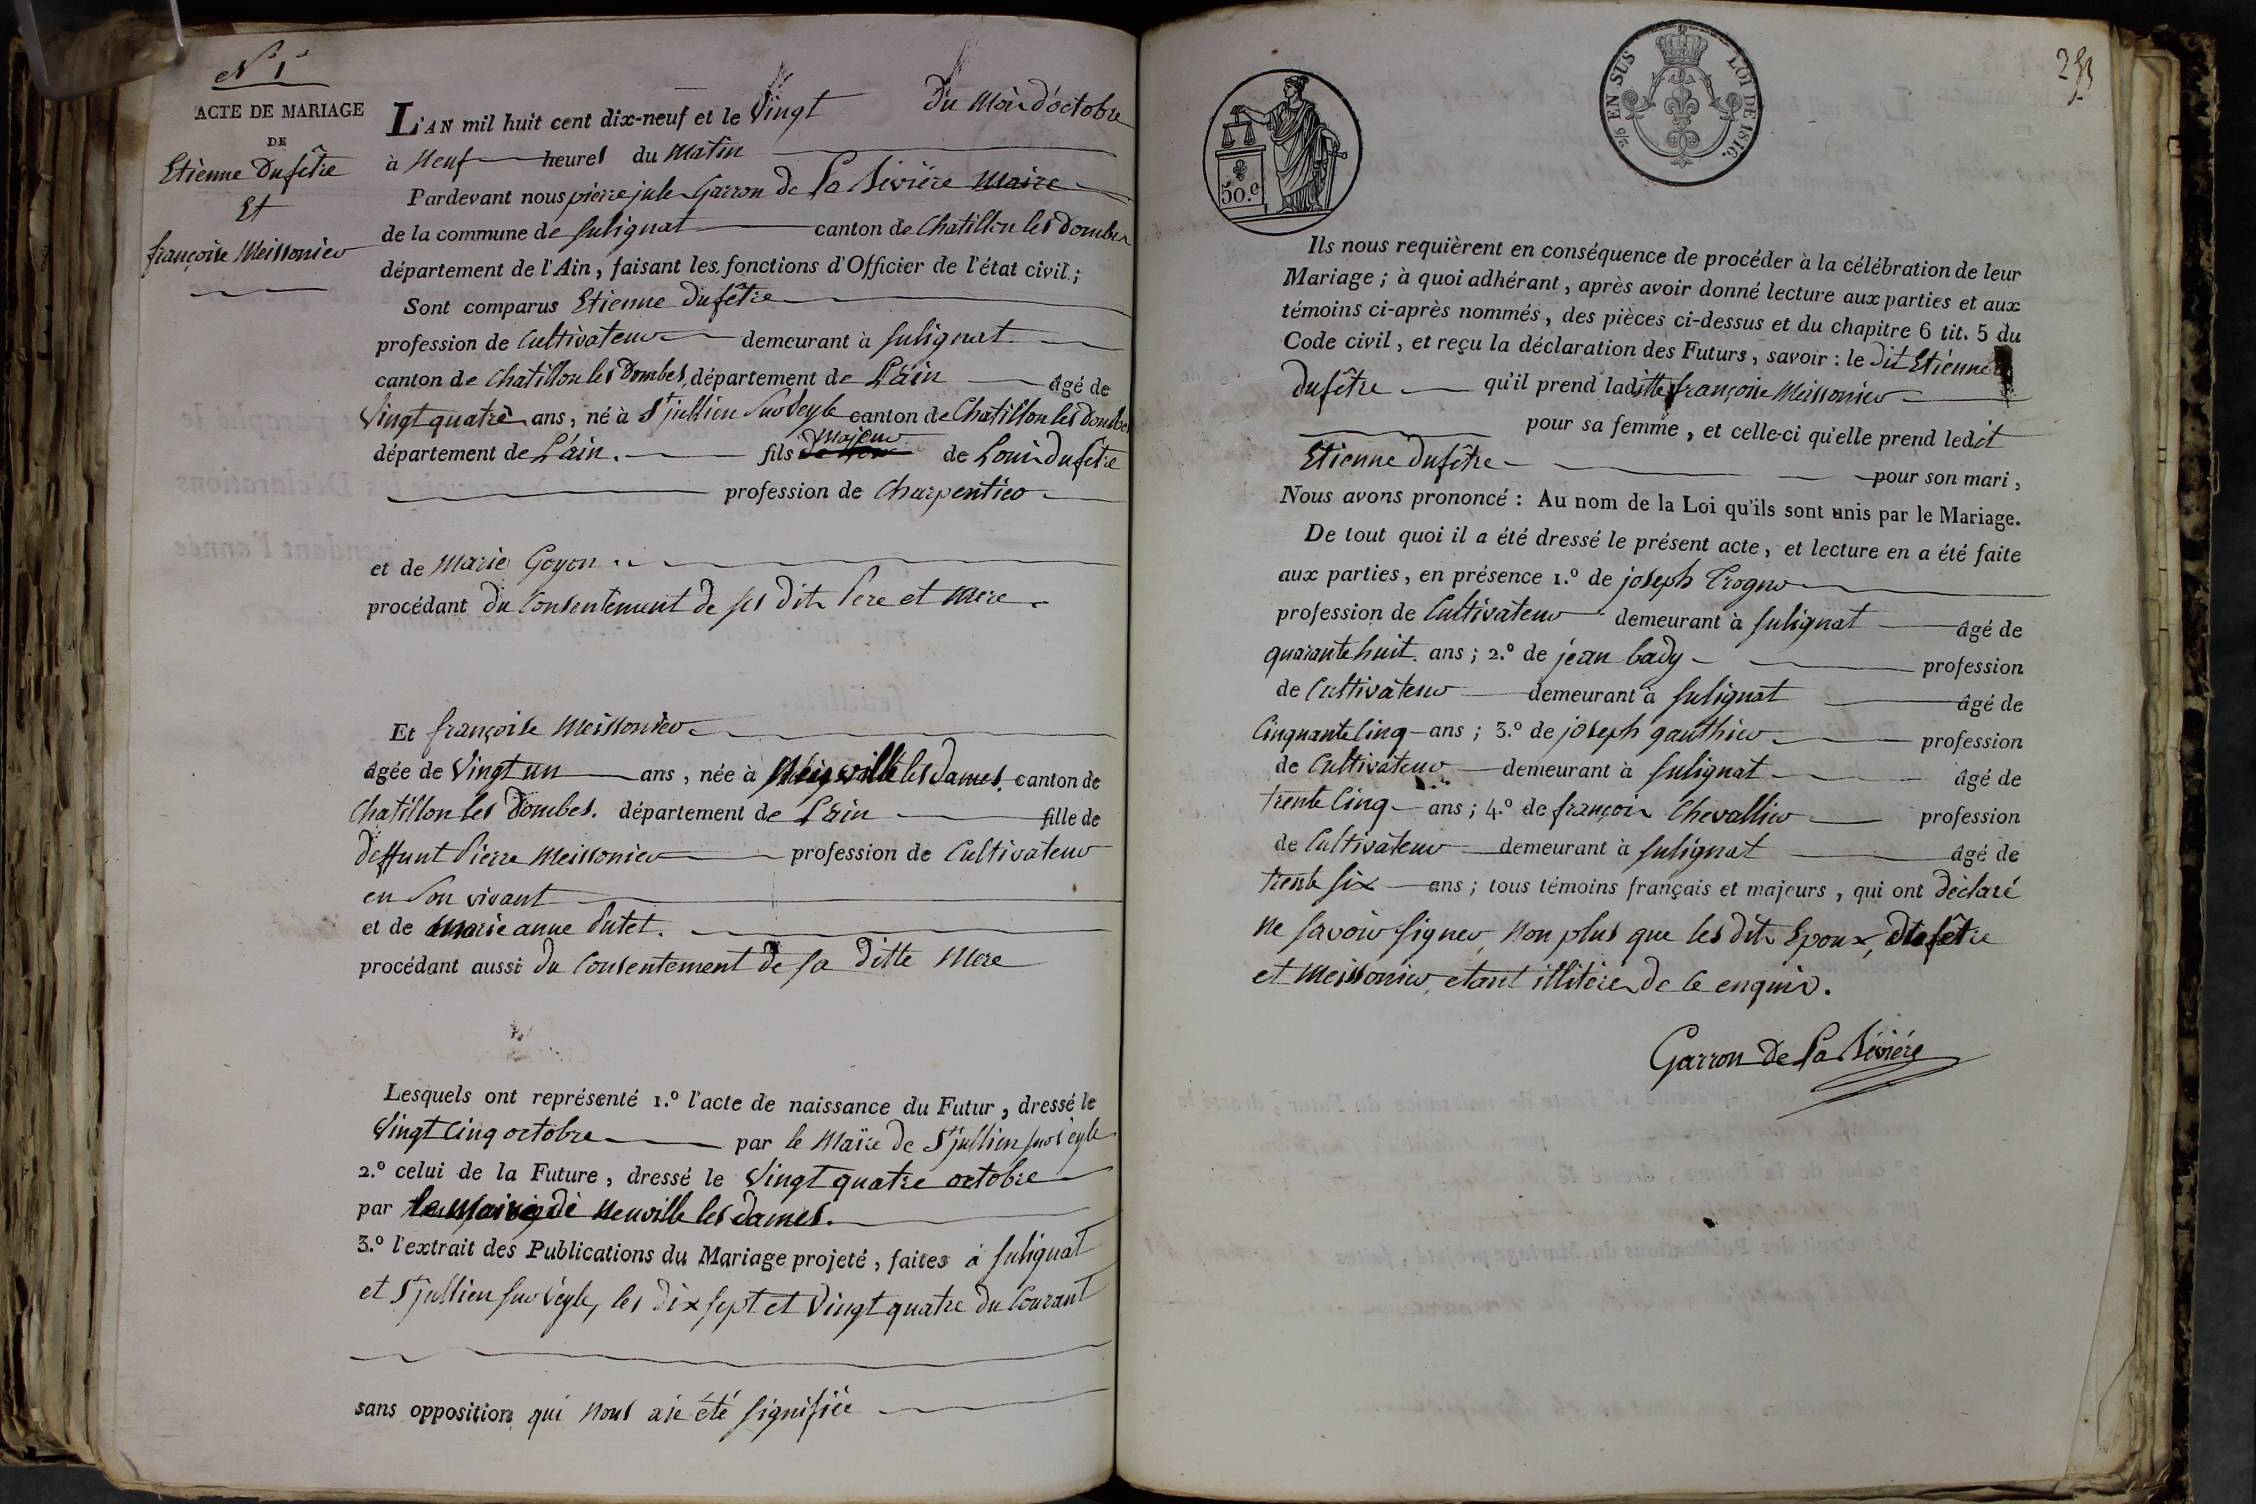 N° 1
ACTE DE MARIAGE
DE
Etienne Dufêtre
Et
françoise Meissonier
L'AN mil huit cent dix-neuf et le Vingt du Mois d'octobre
à Neuf heures du Matin
Pardevant nous pierre jule Garron de La Rivière Maire
de la commune de Sulignat canton de Chatillon les Dombes
département de l'Ain, faisant les fonctions d'Officier de l'état civil;
Sont comparus Etienne Dufêtre
profession de Cultivateur demeurant à Sulignat
canton de Chatillon les Dombes, département de L'ain âgé de
Vingt quatre ans, né à St jullien Sur Veyle canton de Chatillon les Dombes
département de L'ain. fils Majeur de Louis Dufêtre
profession de Charpentier
et de Marie Goyon
procédant du Consentement de ses dits Pere et Mere
Et françoise Meissonier
âgée de Vingt un ans, née à Neuville les Dames, canton de
Chatillon les Dombes. département de L'ain fille de
deffunt Pierre Meissonier profession de Cultivateur
en Son vivant
et de Marie anne Putet.
procédant aussi du Consentement de sa ditte Mere
Lesquels ont représenté 1.º l'acte de naissance du Futur, dressé le
Vingt Cinq octobre par le Maire de St jullien sur Veyle
2.º celui de la Future, dressé le Vingt quatre octobre
par le Maire de Neuville les Dames.
3.º l'extrait des Publications du Mariage projeté, faites à Sulignat
et St jullien sur Veyle, les dix sept et Vingt quatre du Courant
sans opposition qui nous aie été signifiée
50.c
2/5 EN SUS
LOI DE 1816.
Ils nous requièrent en conséquence de procéder à la célébration de leur
Mariage; à quoi adhérant, après avoir donné lecture aux parties et aux
témoins ci-après nommés, des pièces ci-dessus et du chapitre 6 tit. 5 du
Code civil, et reçu la déclaration des Futurs, savoir: le dit Etienne
Dufêtre qu'il prend laditte françoise Meissonier
pour sa femme, et celle-ci qu'elle prend ledit
Etienne Dufêtre pour son mari,
Nous avons prononcé: Au nom de la Loi qu'ils sont unis par le Mariage.
De tout quoi il a été dressé le présent acte, et lecture en a été faite
aux parties, en présence 1.º de joseph Trognu
profession de Cultivateur demeurant à Sulignat âgé de
quarante huit ans; 2.º de jean bady profession
de Cultivateur demeurant à Sulignat âgé de
Cinquante Cinq ans; 3.º de joseph gauthier profession
de Cultivateur demeurant à Sulignat âgé de
trente Cinq ans; 4.º de françois Chevallier profession
de Cultivateur demeurant à Sulignat âgé de
trente six ans; tous témoins français et majeurs, qui ont déclaré
ne savoir signer, Non plus que les dits Epoux, Dufêtre
et Meissonier, etant illitérés de ce enquis.
Garron de La Rivière